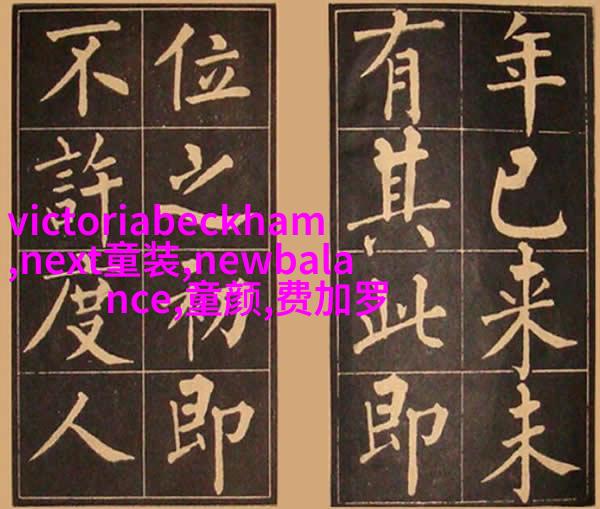 年已来未
有其此即
位之初即
不許度人
victoriabeckham
,next童装,newbala
nce,童颜,费加罗